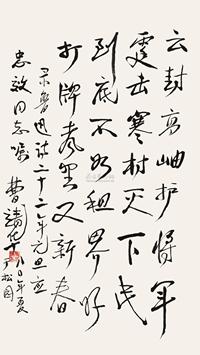 云封高岫护将军
霆击寒村灭下民
到底不如租界好
打牌声里又新春
录鲁迅诗二十二年元旦应
忠效同志嘱
曹靖华
八〇年夏
松园